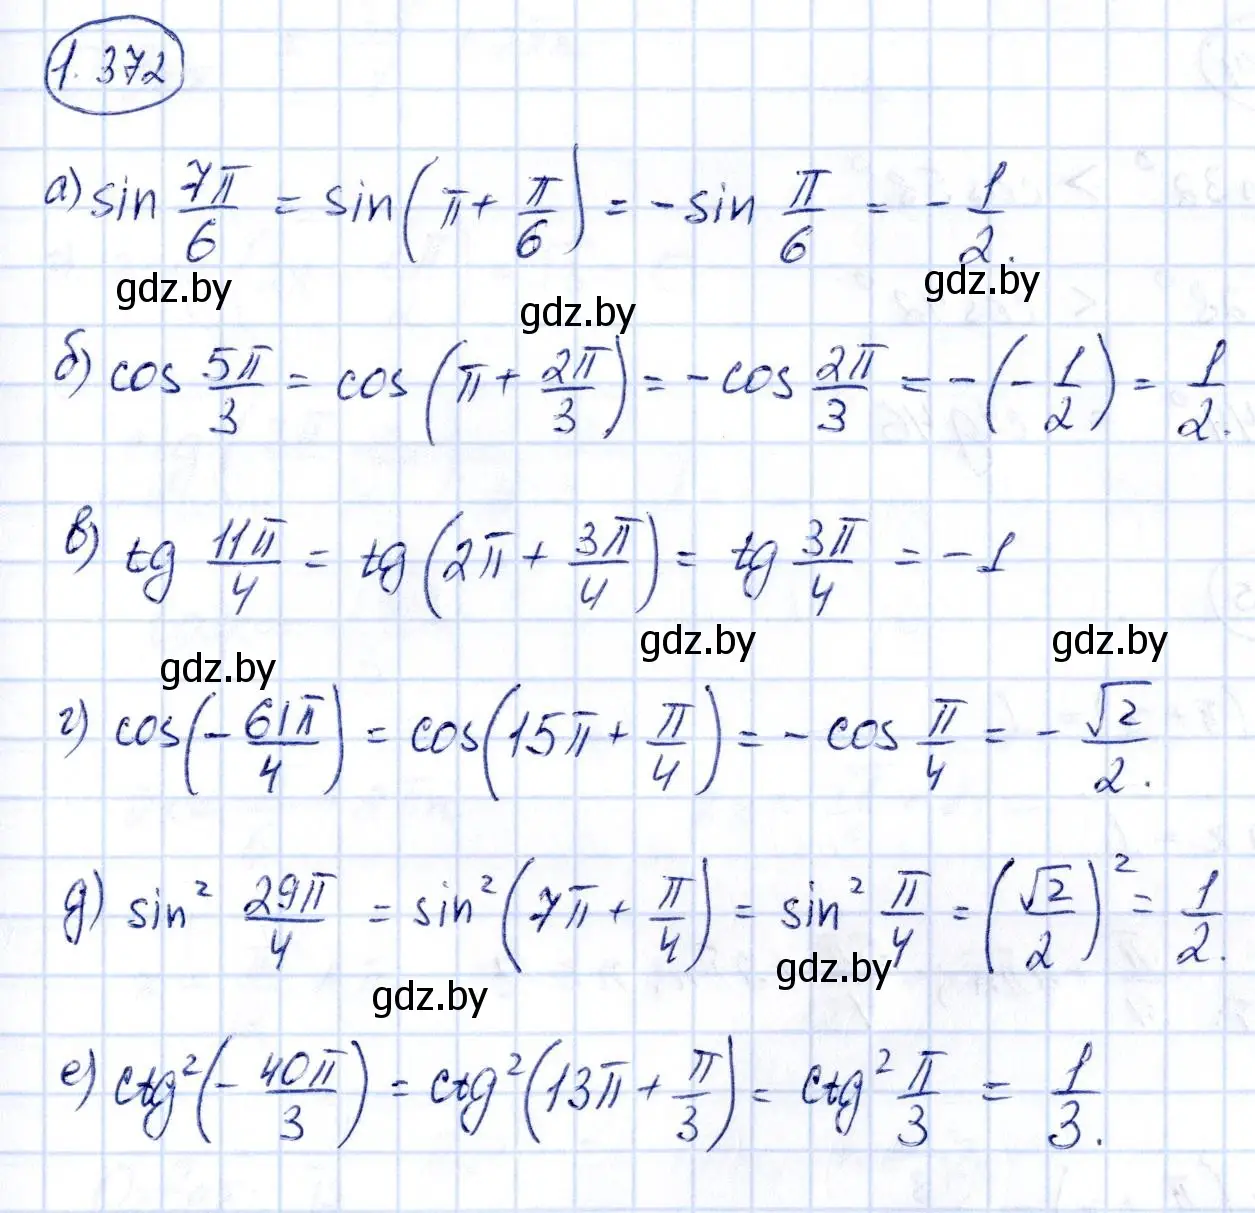 1.372
а) sin 7π/6 = sin(π + π/6) = -sin π/6 = -1/2.
gdz.by gdz.by gdz.by
б) cos 5π/3 = cos(π + 2π/3) = -cos 2π/3 = -(-1/2) = 1/2.
в) tg 11π/4 = tg(2π + 3π/4) = tg 3π/4 = -1
gdz.by gdz.by gdz.by
г) cos(-61π/4) = cos(15π + π/4) = -cos π/4 = -√2/2.
д) sin² 29π/4 = sin²(7π + π/4) = sin² π/4 = (√2/2)² = 1/2.
gdz.by gdz.by
е) ctg²(-40π/3) = ctg²(13π + π/3) = ctg² π/3 = 1/3.